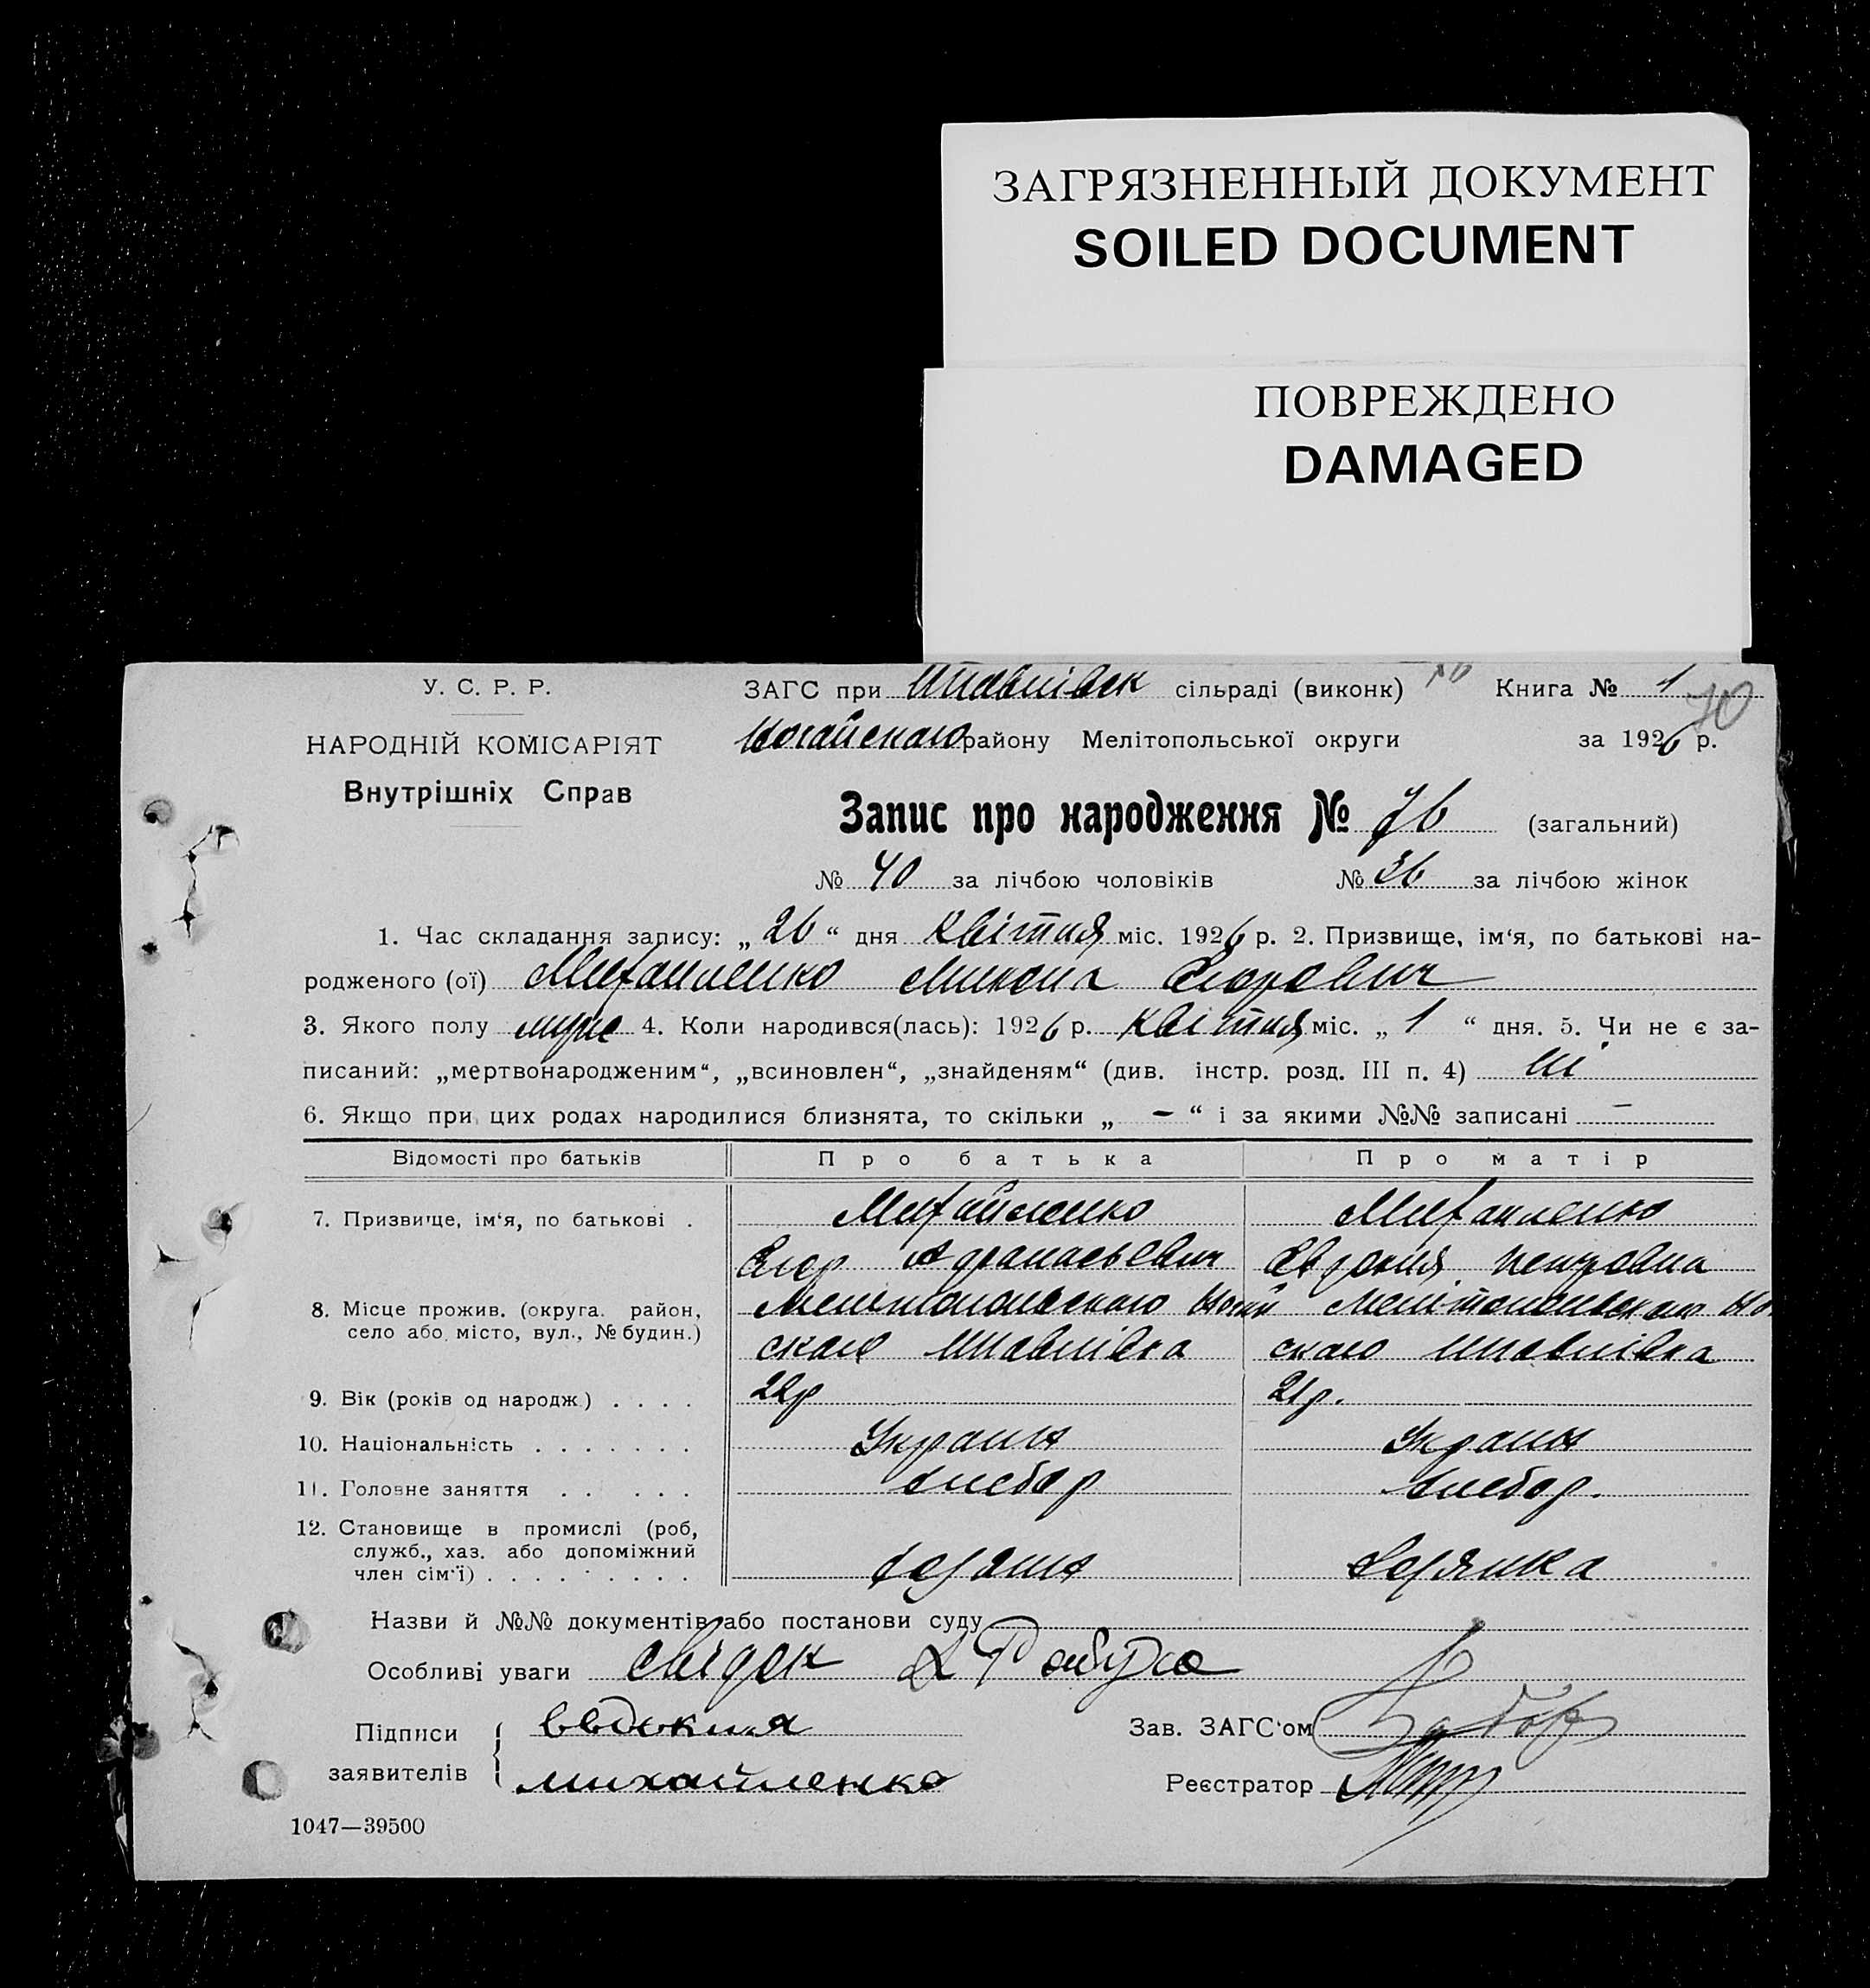 ЗАГРЯЗНЕННЫЙ ДОКУМЕНТ
SOILED DOCUMENT
ПОВРЕЖДЕНО
DAMAGED
У. С. Р. Р.
НАРОДНІЙ КОМІСАРІЯТ
Внутрішніх Справ
ЗАГС при сільраді (виконк) Книга № 1
70
Ногайского району Мелітопольської округи за 1926 р.
Запис про народження № 76 (загальний)
№ 40 за лічбою чоловіків № 36 за лічбою жінок
1. Час складання запису: „ 26 “ дня Квітня міс. 1926 р. 2. Призвище, ім‘я, по батькові на-
родженого (ої) Михайленко Микола Єгорович
3. Якого полу муже 4. Коли народився(лась): 1926 р. Квітня міс. „ 1 “ дня. 5. Чи не є за-
писаний: „мертвонародженим“, „всиновлен“, „знайденям“ (див. інстр. розд. III п. 4) Ні
6. Якщо при цих родах народилися близнята, то скільки „ — “ і за якими №№ записані —
Відомості про батьків Про батька Про матір
7. Призвище, ім‘я, по батькові . Михайленко Михайленко
Егор Афанасьевич Евдокия Петровна
8. Місце прожив. (округа. район, село або місто, вул., № будин.) Мелитопольского Ногай Мелітопольского Но
ского ского
9. Вік (років од народж.) . . . . 22р 21р.
10. Національність . . . . . . . Україн Україн
11. Головне заняття . . . . . Хлебор Хлебор.
12. Становище в промислі (роб, служб., хаз. або допоміжний член сім‘ї) . . . . . . . . .
Назви й №№ документів або постанови суду
Особливі уваги свідок
Підписи Зав. ЗАГС‘ом
Евдокия
заявителів Реєстратор
михайленко
1047—39500